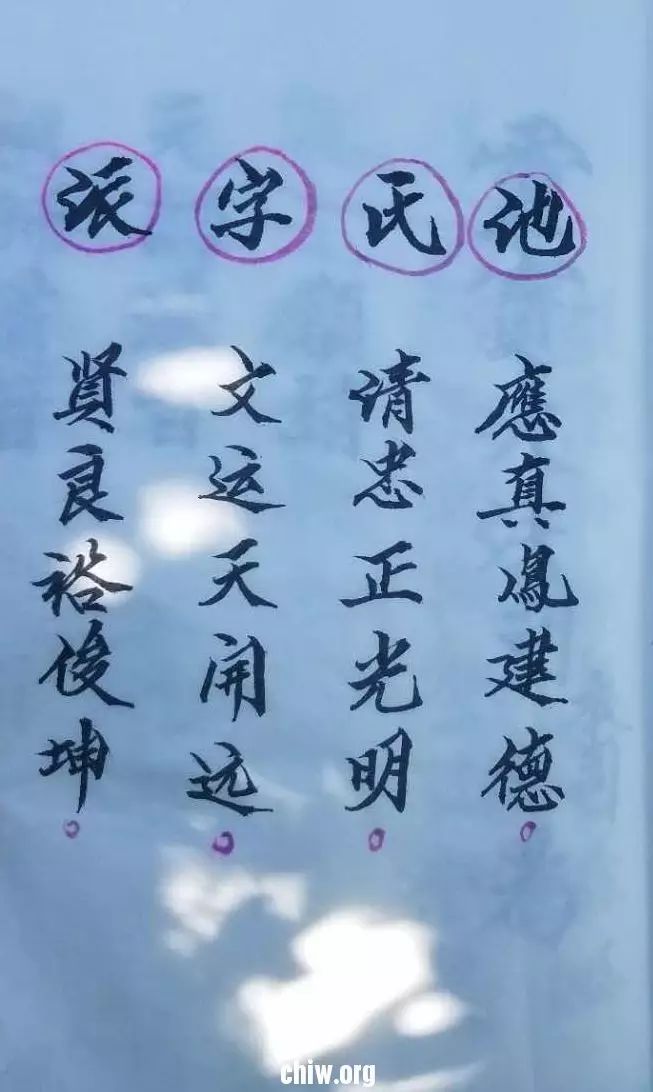 池氏字派
應真鳳建德
请忠正光明
文运天开远
賢良裕俊坤
chiw.org